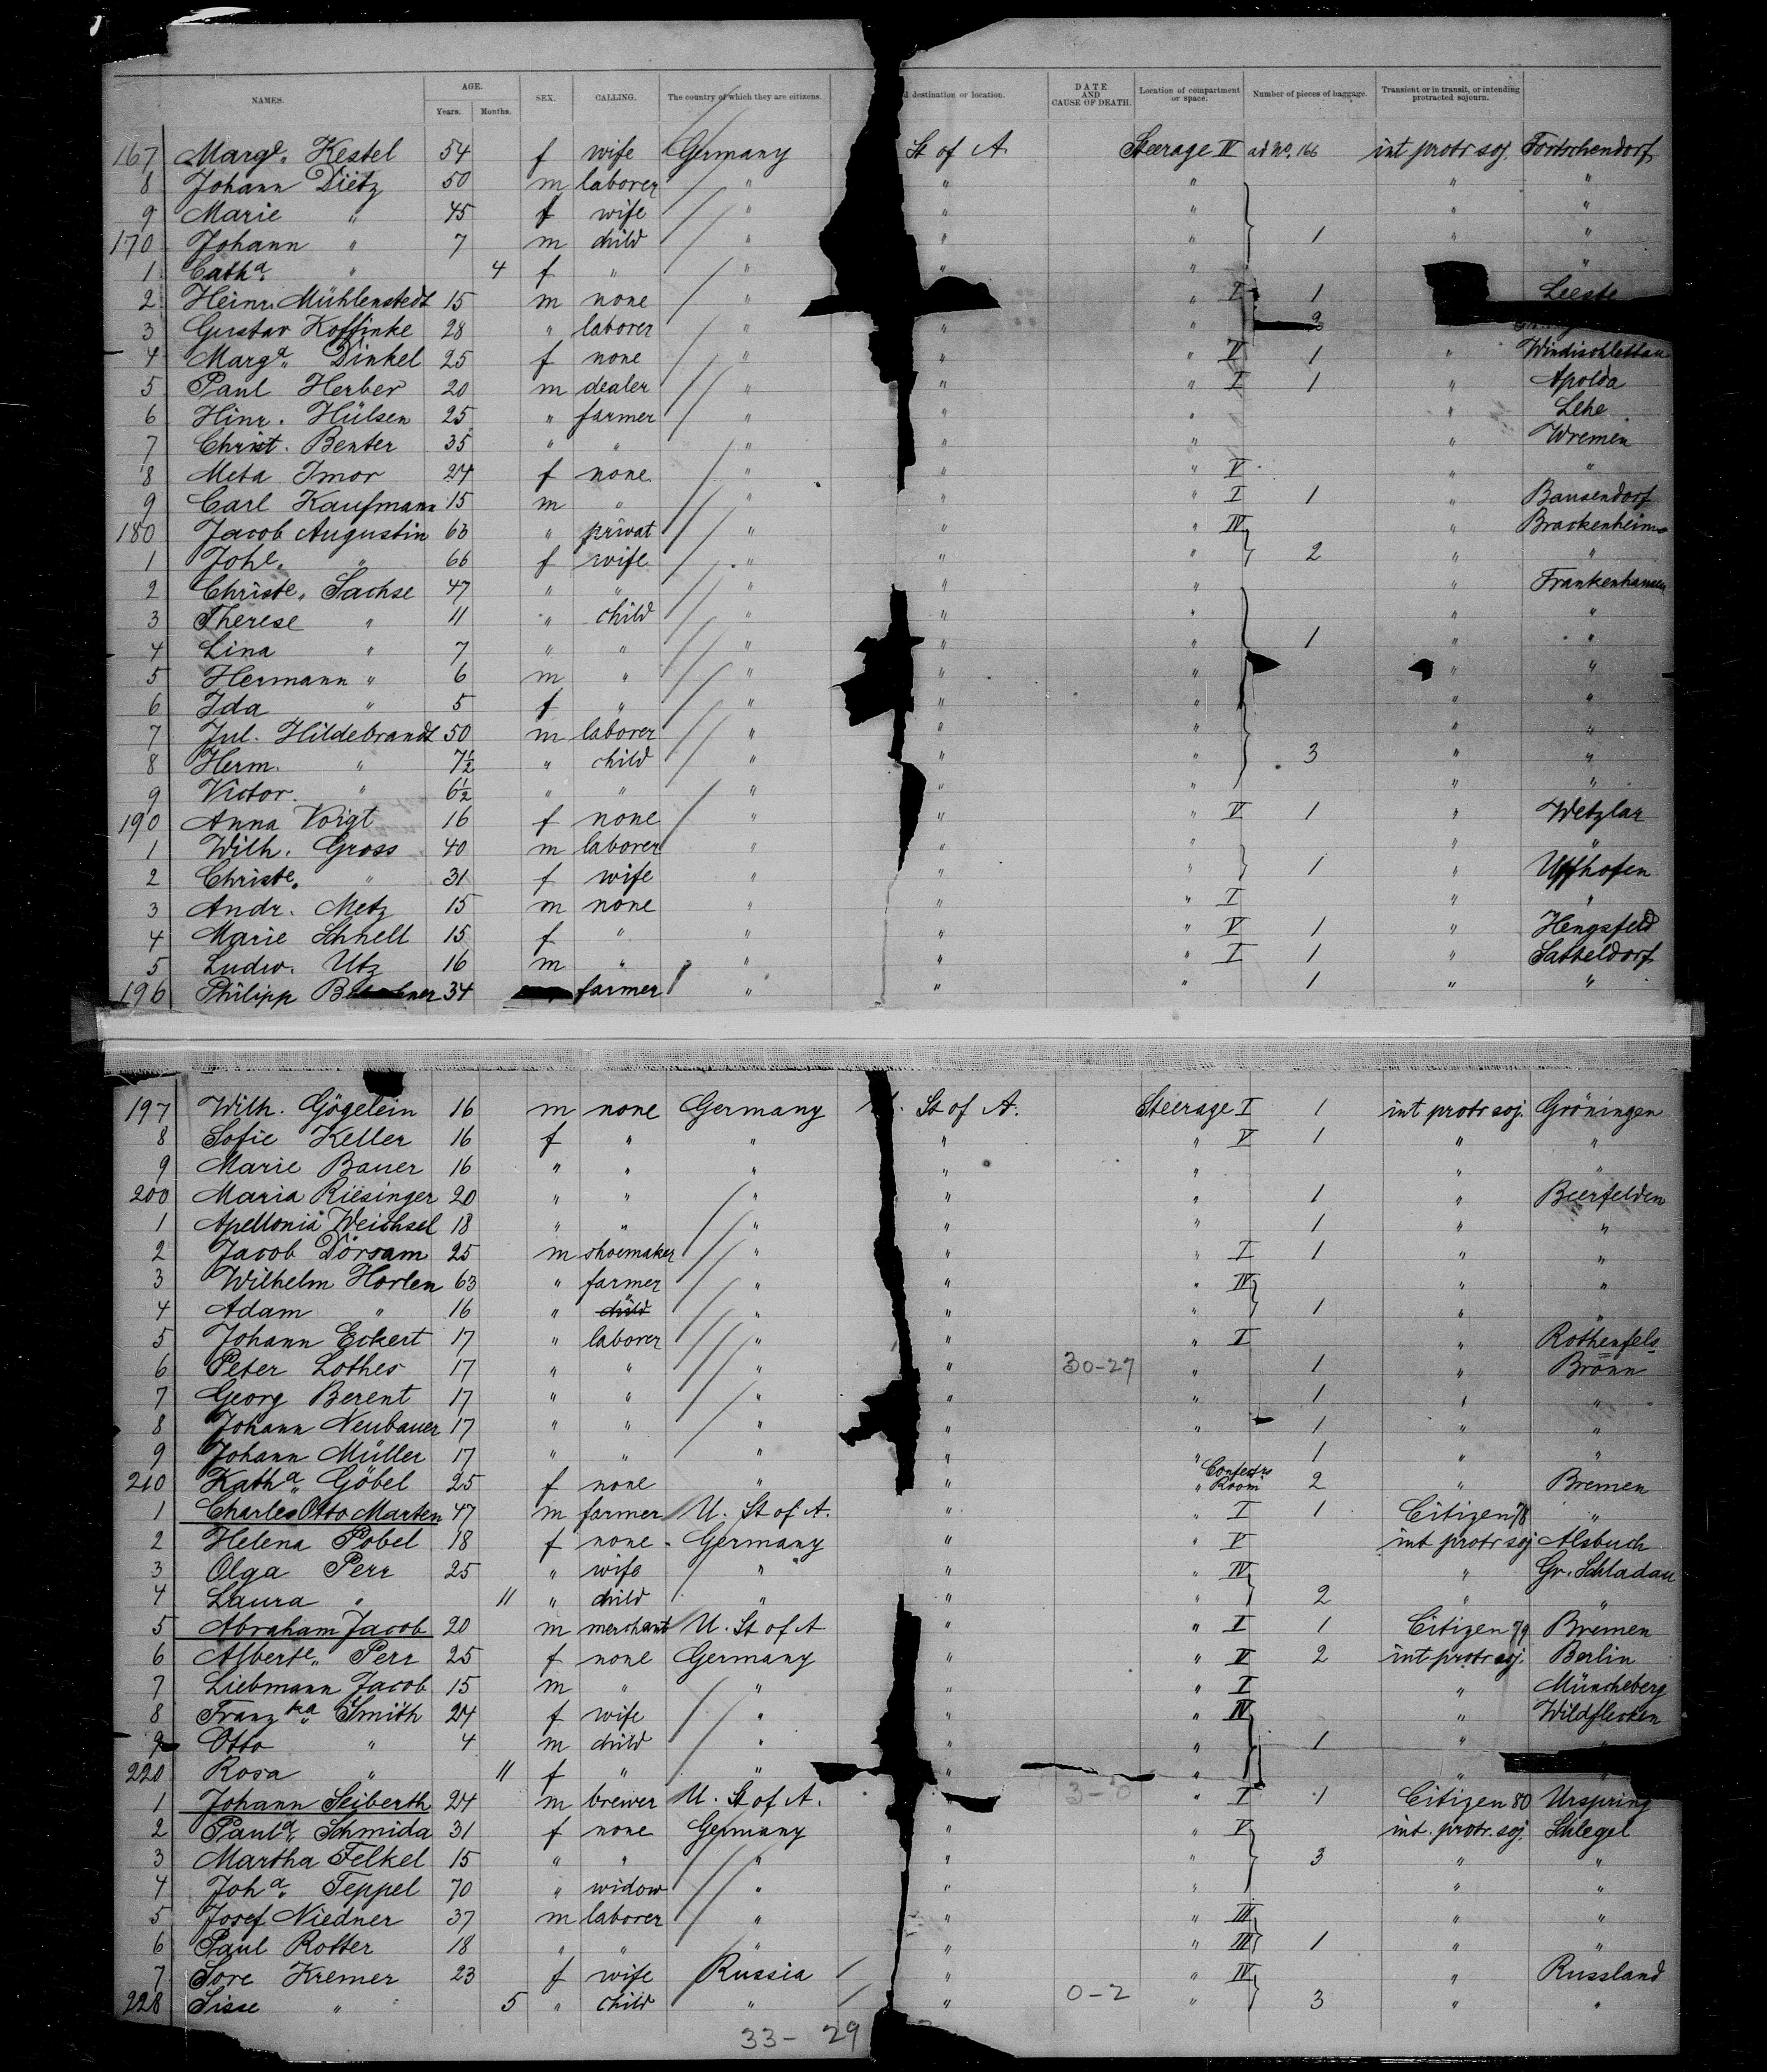 NAMES. AGE. Years. Months. SEX. CALLING. The country of which they are citizens. destination or location. DATE AND CAUSE OF DEATH. Location of compartment or space. Number of pieces of baggage. Transient or in transit, or intending protracted sojourn.
167 Marge. Kestel 54 f wife Germany St of A. Steerage IV ad No. 166 int protr soj. Tortschendorf
8 Johann Dietz 50 m laborer " " " " "
9 Marie " 45 f wife " " " " "
170 Johann " 7 m child " " " 1 " "
1 Catha. " 4 f " " " " "
2 Heinr. Mühlenstedt 15 m none " " I 1 Leeste
3 Gustav Koffinke 28 " laborer " " "
4 Marga. Dinkel 25 f none " " " V 1 " Windischlettau
5 Paul Herber 20 m dealer " " " I 1 " Apolda
6 Hinr. Hülsen 25 " farmer " " " " Lehe
7 Christ. Benter 35 " " " " " " Wremen
8 Meta Imor 24 f none " " " V " "
9 Carl Kaufmann 15 m " " " " I 1 " Bausendorf
180 Jacob Augustin 63 " privat " " " IV " Brackenheim
1 Johe. " 66 f wife " " " 2 " "
2 Christe. Sachse 47 " " " " " " Frankenhausen
3 Therese " 11 " child " " " " "
4 Lina " 7 " " " " " 1 " "
5 Hermann " 6 m " " " " " "
6 Ida " 5 f " " " " " "
7 Jul. Hildebrandt 50 m laborer " " " " "
8 Herm. " 7½ " child " " " 3 " "
9 Victor " 6½ " " " " " " "
190 Anna Voigt 16 f none " " " V 1 " Wetzlar
1 Wilh. Gross 40 m laborer " " " " "
2 Christe. " 31 f wife " " " 1 " Uffhofen
3 Andr. Metz 15 m none " " " I " "
4 Marie Schnell 15 f " " " " V 1 " Hengsfeld
5 Ludw. Utz 16 m " " " " I 1 " Satteldorf
196 Philipp 34 farmer " " " 1 " "
197 Wilh. Gögelein 16 m none Germany St of A. Steerage I 1 int protr soj. Gröningen
8 Sofie Keller 16 f " " " " V 1 " "
9 Marie Bauer 16 " " " " " " "
200 Maria Riesinger 20 " " " " " 1 " Beerfelden
1 Apellonia Weichsel 18 " " " " " 1 " "
2 Jacob Dörsam 25 m shoemaker " " " I 1 " "
3 Wilhelm Horlen 63 " farmer " " " IV " "
4 Adam " 16 " child " " " 1 " "
5 Johann Eckert 17 " laborer " " " I " Rothenfels
6 Peter Lothes 17 " " " " 30-27 " 1 " Brönn
7 Georg Berent 17 " " " " " 1 " "
8 Johann Neubauer 17 " " " " " 1 " "
9 Johann Müller 17 " " " " " 1 " "
210 Katha. Göbel 25 f none " " " Room 2 " Bremen
1 Charles Otto Marten 47 m farmer U. St of A. " " I 1 Citizen 78 "
2 Helena Pobel 18 f none Germany " " V int protr soj Alsbuch
3 Olga Perr 25 " wife " " " IV " Gr. Schladau
4 Laura " 11 " child " " " 2 " "
5 Abraham Jacob 20 m merchant U. St of A " " I 1 Citizen 79 Bremen
6 Alberte. Perr 25 f none Germany " " V 2 int protr soj. Berlin
7 Liebmann Jacob 15 m " " " " I " Müncheberg
8 Franzka. Smith 24 f wife " " " IV " Wildflecken
9 Otto " 4 m child " " " 1 " "
220 Rosa " 11 f " " " " " "
1 Johann Seiberth 24 m brewer U. St of A. " " I 1 Citizen 80 Urspring
2 Paula. Schmida 31 f none Germany " " V int. protr. soj. Schlegel
3 Martha Felkel 15 " " " " " 3 " "
4 Joha. Teppel 70 " widow " " " " "
5 Josef Niedner 37 m laborer " " " III " "
6 Paul Rotter 18 " " " " " III 1 " "
7 Sore Kremer 23 f wife Russia " " IV " Russland
228 Sisse " 5 " child " " 0-2 " 3 " "
33- 29